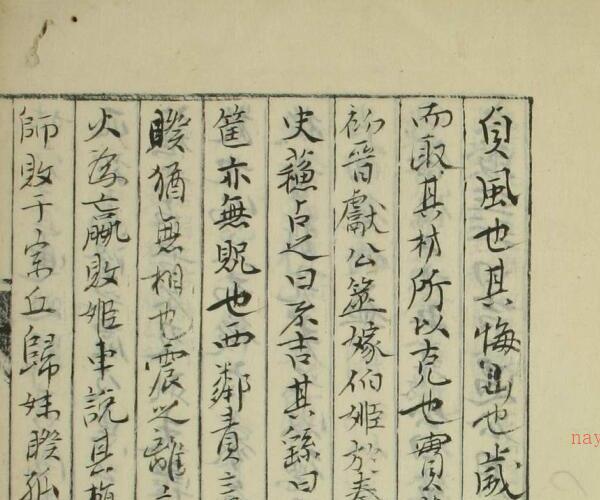 貞風也其悔山也歲
而取其材所以克也實
初晉獻公筮嫁伯姬於秦
史蘇占之曰不吉其繇曰
筐亦無貺也西鄰責言
睽猶無相也震之離
火為嬴敗姬車說其
師敗于宗丘歸妹睽孤
nay